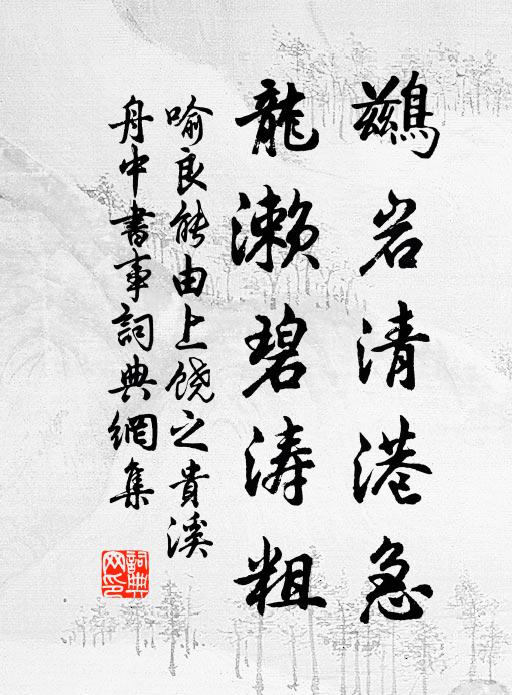 鷀岩清港急
龍濑碧涛粗
喻良能由上饶之貴溪
舟中書事詞典網集
詞典网印